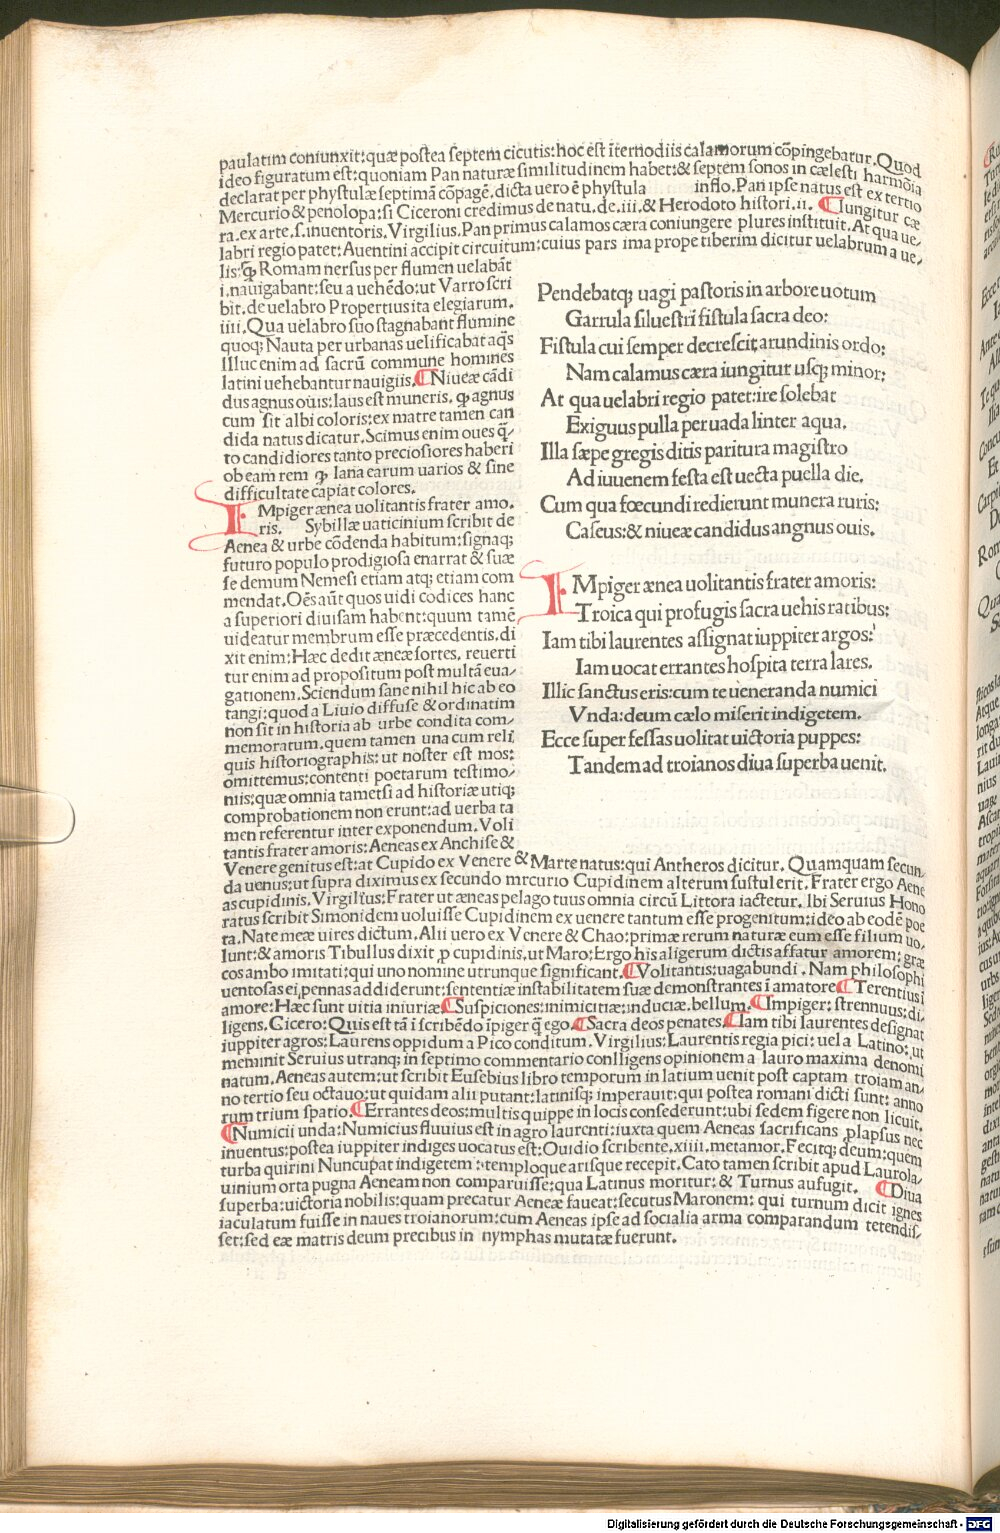 paulatim coniunxit: quæ postea septem cicutis: hoc est ĩternodiis calamorum cõpingebatur. Quod
ideo figuratum est: quoniam Pan naturæ similitudinem habet: & septem sonos in cælesti harmõia
declarat per phystulæ septimã cõpagẽ, dicta uero ẽ phystula inflo. Pan ipse natus est ex tertio
Mercurio & penolopa: si Ciceroni credimus de natu. de. iii. & Herodoto histori. ii. ¶ Iungitur cæ
ra. ex arte. s. inuentoris. Virgilius. Pan primus calamos cæra coniungere plures instituit. At qua ue/
labri regio patet: Auentini accipit circuitum: cuius pars ima prope tiberim dicitur uelabrum a ue/
lis: ꝙ Romam nersus per flumen uelabãt
i. nauigabant: seu a uehẽdo: ut Varro scri
bit. de uelabro Propertius ita elegiarum.
iiii. Qua uelabro suo stagnabant flumine
quoq; Nauta per urbanas uelificabat aq̃s
Illuc enim ad sacrũ commune homines
latini uehebantur nauigiis. ¶ Niueæ cãdi
dus agnus ouis: laus est muneris. ꝙ agnus
cum sit albi coloris: ex matre tamen can
dida natus dicatur. Scimus enim oues q̃/
to candidiores tanto preciosiores haberi
ob eam rem ꝙ lana earum uarios & sine
difficultate capiat colores.
IMpiger ænea uolitantis frater amo.
ris. Sybillæ uaticinium scribit de
Aenea & urbe cõdenda habitum: signaq;
futuro populo prodigiosa enarrat & suæ
se demum Nemesi etiam atq; etiam com
mendat. Oẽs aũt quos uidi codices hanc
a superiori diuisam habent: quum tamẽ
uideatur membrum esse præcedentis. di
xit enim: Hæc dedit æneæ sortes. reuerti
tur enim ad propositum post multã eua/
gationem. Sciendum sane nihil hic ab eo
tangi: quod a Liuio diffuse & ordinatim
non sit in historia ab urbe condita com/
memoratum. quem tamen una cum reli
quis historiographis: ut noster est mos:
omittemus: contenti poetarum testimo/
niis: quæ omnia tametsi ad historiæ utiq;
comprobationem non erunt: ad uerba ta
men referentur inter exponendum. Voli
tantis frater amoris: Aeneas ex Anchise &
Pendebatq; uagi pastoris in arbore uotum
Garrula siluestri fistula sacra deo:
Fistula cui semper decrescit arundinis ordo:
Nam calamus cæra iungitur usq; minor;
At qua uelabri regio patet: ire solebat
Exiguus pulla per uada linter aqua.
Illa sæpe gregis ditis paritura magistro
Ad iuuenem festa est uecta puella die.
Cum qua fœcundi redierunt munera ruris:
Caseus: & niueæ candidus angnus ouis.
IMpiger ænea uolitantis frater amoris:
Troica qui profugis sacra uehis ratibus:
Iam tibi laurentes assignat iuppiter argos:
Iam uocat errantes hospita terra lares.
Illic sanctus eris: cum te ueneranda numici
Vnda: deum cælo miserit indigetem.
Ecce super fessas uolitat uictoria puppes:
Tandem ad troianos diua superba uenit.
Venere genitus est: at Cupido ex Venere & Marte natus: qui Antheros dicitur. Quamquam secun/
da uenus: ut supra diximus ex secundo mrcurio Cupidinem alterum sustulerit. Frater ergo Aene
as cupidinis. Virgilius: Frater ut æneas pelago tuus omnia circũ Littora iactetur. Ibi Seruius Hono
ratus scribit Simonidem uoluisse Cupidinem ex uenere tantum esse progenitum: ideo ab eodẽ poe
ta. Nate meæ uires dictum. Alii uero ex Venere & Chao: primæ rerum naturæ eum esse filium uo/
lunt: & amoris Tibullus dixit ꝓ cupidinis. ut Maro; Ergo his aligerum dictis affatur amorem; græ
cos ambo imitati: qui uno nomine utrunque significant. ¶ Volitantis: uagabundi. Nam philosophi
uentosas ei, pennas addiderunt: sententiæ instabilitatem suæ demonstrantes ĩ amatore ¶ Terentius ĩ
amore: Hæc sunt uitia iniuriæ ¶ Suspiciones: inimicitiæ: induciæ. bellum. ¶ Impiger: strennuus: di/
ligens. Cicero: Quis est tã ĩ scribẽdo ĩpiger q̃ ego. ¶ Sacra deos penates. ¶ Iam tibi laurentes designat
iuppiter agros: Laurens oppidum a Pico conditum. Virgilius: Laurentis regia pici: uel a Latino: ut
meminit Seruius utranq; in septimo commentario conlligens opinionem a lauro maxima denomi
natum. Aeneas autem: ut scribit Eusebius libro temporum in latium uenit post captam troiam an/
no tertio seu octauo: ut quidam alii putant: latinisq; imperauit: qui postea romani dicti sunt: anno
rum trium spatio. ¶ Errantes deos: multis quippe in locis consederunt: ubi sedem figere non licuit.
¶ Numicii unda: Numicius fluuius est in agro laurenti: iuxta quem Aeneas sacrificans ꝓlapsus nec
inuentus: postea iuppiter indiges uocatus est: Ouidio scribente. xiiii. metamor. Fecitq; deum: quem
turba quirini Nuncupat indigetem: temploque arisque recepit. Cato tamen scribit apud Laurola/
uinium orta pugna Aeneam non comparuisse: qua Latinus moritur: & Turnus aufugit. ¶ Diua
superba: uictoria nobilis: quam precatur Aeneæ faueat: secutus Maronem: qui turnum dicit ignes
iaculatum fuisse in naues troianorum: cum Aeneas ipse ad socialia arma comparandum tetendis/
set: sed eæ matris deum precibus in nymphas mutatæ fuerunt.
Digitalisierung gefördert durch die Deutsche Forschungsgemeinschaft - DFG